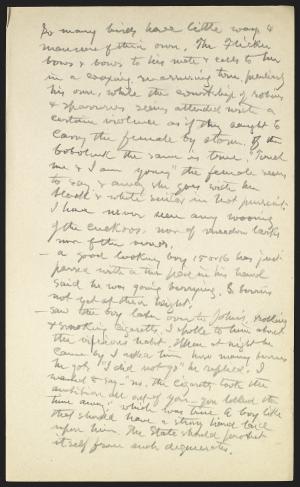 So many birds have little ways &
manners of their own. The Flicker
bows & bows to his mate & calls to her
in a coaxing reassuring tone, peculiarly
his own, while the courtship of robins
& sparrows seems attended with a
certain violence as if they sought to
carry the female by storm. Of the
bobolink the same is true. "Touch
me & I am yours" the female seems
to say, & away she goes with her
black & white suitor in hot pursuit.
I have never seen any wooing
of the cuckoos. nor of meadow larks
nor of the vireos.
— a good looking boy 15 or 16 has just
passed with a tin pail in his hand
said he was going berrying. S. berries
not yet at their height.
— saw the boy later over to John's, loafing
& smoking cigaretts. I spoke to him about
the vicious habit. When at night he
came by I asked him how many berries
he got. "I did not go" he replied. I
wanted to say— "no, the cigarett took the
ambition all out of you— you loafed the
time away," which was true. A boy like
that should have a strong hand laid
upon him. The State should protect
itself from such degenerates.